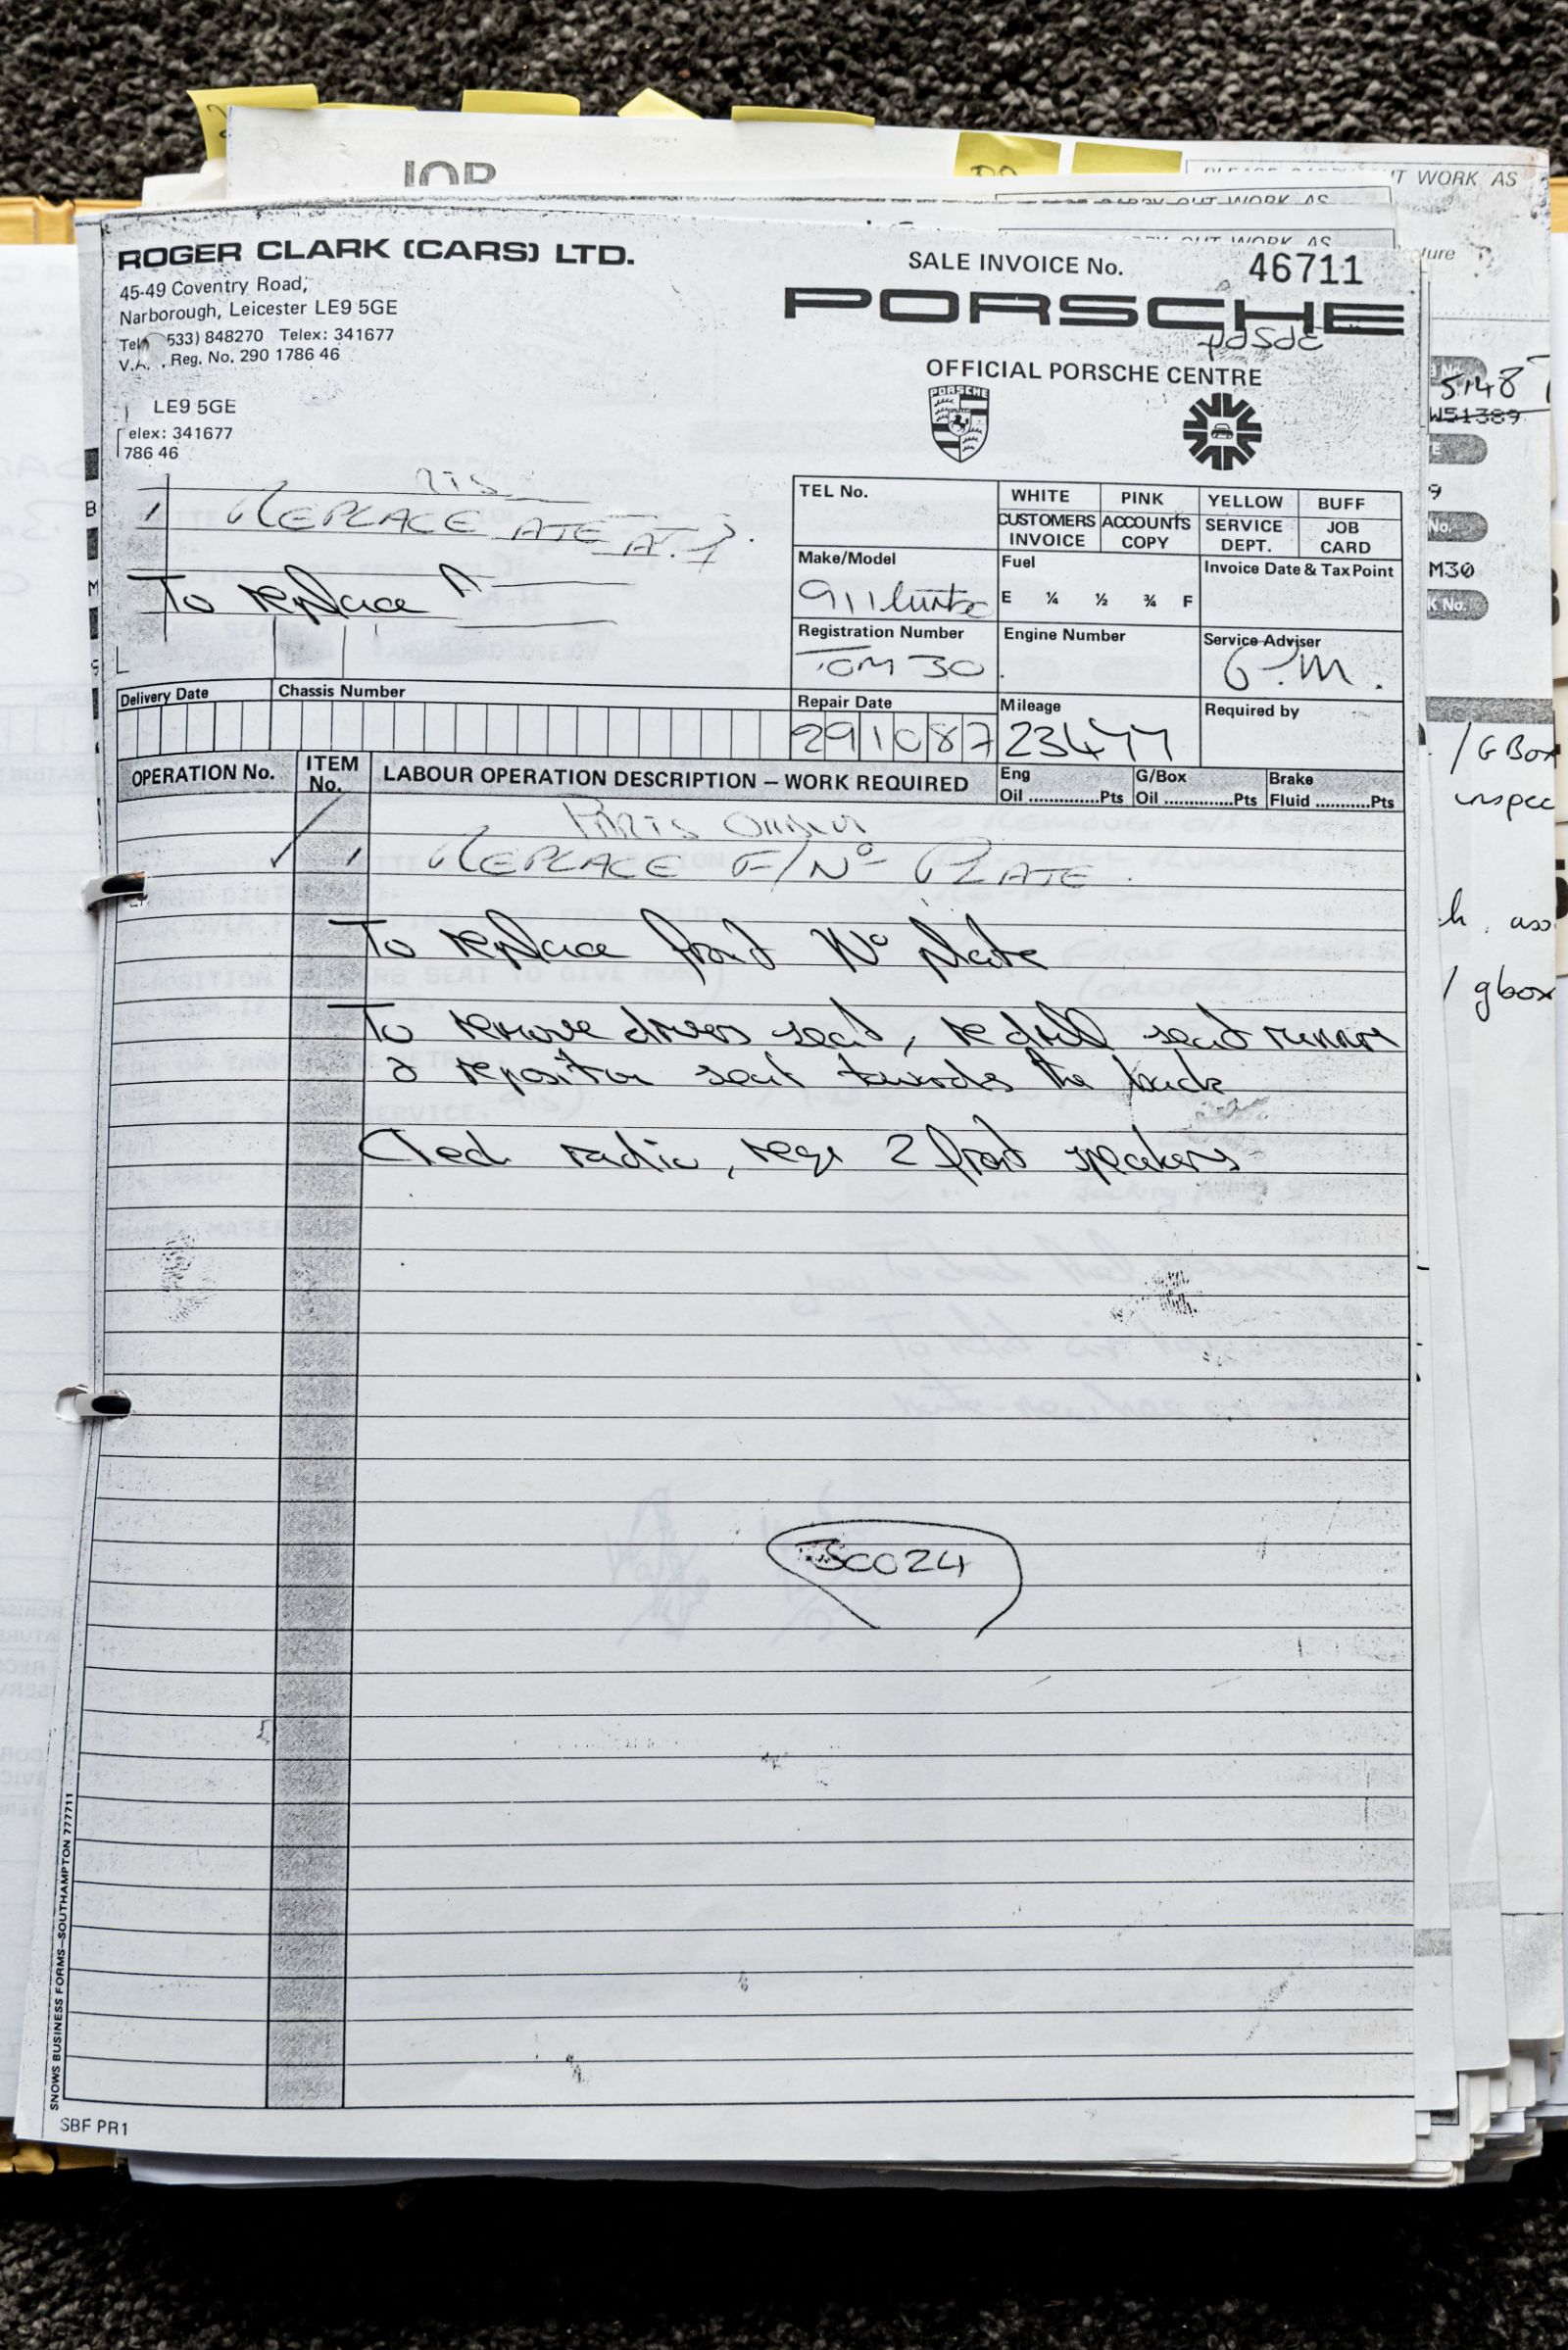 ROGER CLARK (CARS) LTD.
45-49 Coventry Road,
Narborough, Leicester LE9 5GE
533) 848270 Telex: 341677
Reg. No. 290 1786 46
LE9 5GE
elex: 341677
786 46
SALE INVOICE No. 46711
PORSCHE
OFFICIAL PORSCHE CENTRE
PORSCHE
REPLACE
To replace
TEL No.
WHITE PINK YELLOW BUFF
CUSTOMERS INVOICE ACCOUNTS COPY SERVICE DEPT. JOB CARD
Make/Model Fuel Invoice Date & Tax Point
911 turbo E ¼ ½ ¾ F
Registration Number Engine Number Service Adviser
TOM 30 G.M.
Delivery Date Chassis Number Repair Date Mileage Required by
291087 23477
OPERATION No. ITEM No. LABOUR OPERATION DESCRIPTION – WORK REQUIRED Eng Oil .............Pts G/Box Oil ..............Pts Brake Fluid ...........Pts
PARTS ORDER
1 REPLACE F/Nº PLATE.
To replace front Nº plate
To remove drivers seat, redrill seat runner
& reposition seat towards the back
Cked radio, reqs 2 front speakers
SC024
SNOWS BUSINESS FORMS—SOUTHAMPTON 777711
SBF PR1
JOB
T WORK AS
CARRY OUT WORK AS
OUT WORK AS
5148
W51389
9
No.
M30
K No.
/ G Box
inspec
h. ass
/ gbox